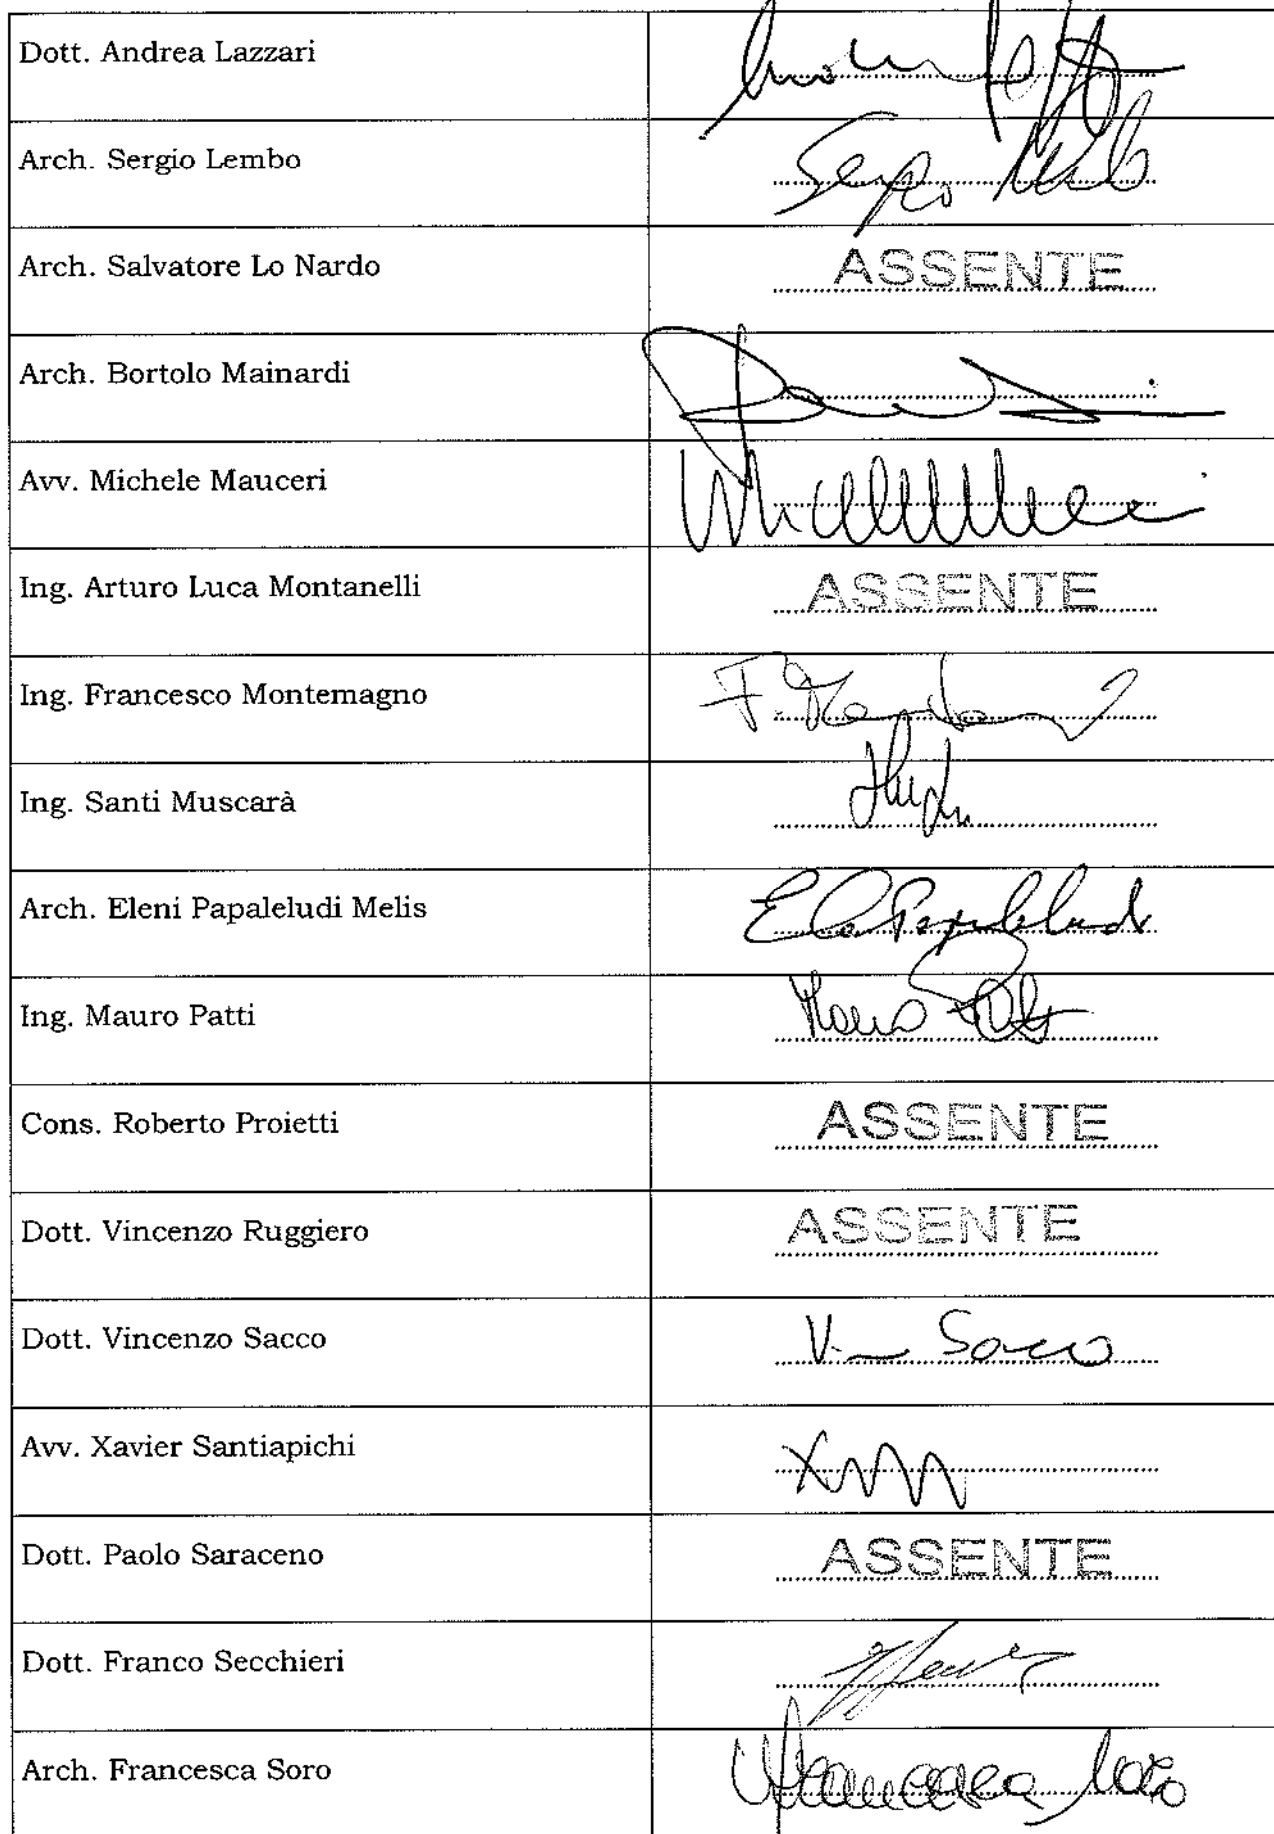 Dott. Andrea Lazzari
Arch. Sergio Lembo
Sergio Lembo
Arch. Salvatore Lo Nardo
ASSENTE
Arch. Bortolo Mainardi
Avv. Michele Mauceri
Ing. Arturo Luca Montanelli
ASSENTE
Ing. Francesco Montemagno
Ing. Santi Muscarà
Arch. Eleni Papaleludi Melis
Ing. Mauro Patti
Mauro Patti
Cons. Roberto Proietti
ASSENTE
Dott. Vincenzo Ruggiero
ASSENTE
Dott. Vincenzo Sacco
Sacco
Avv. Xavier Santiapichi
Dott. Paolo Saraceno
ASSENTE
Dott. Franco Secchieri
Arch. Francesca Soro
Francesca Soro